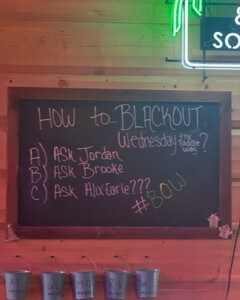 &
SO
HOW to BLACKOUT
Wednesday the saddle way?
A) Ask Jordan
B) Ask Brooke
C) Ask Alix Earle???
#BOW